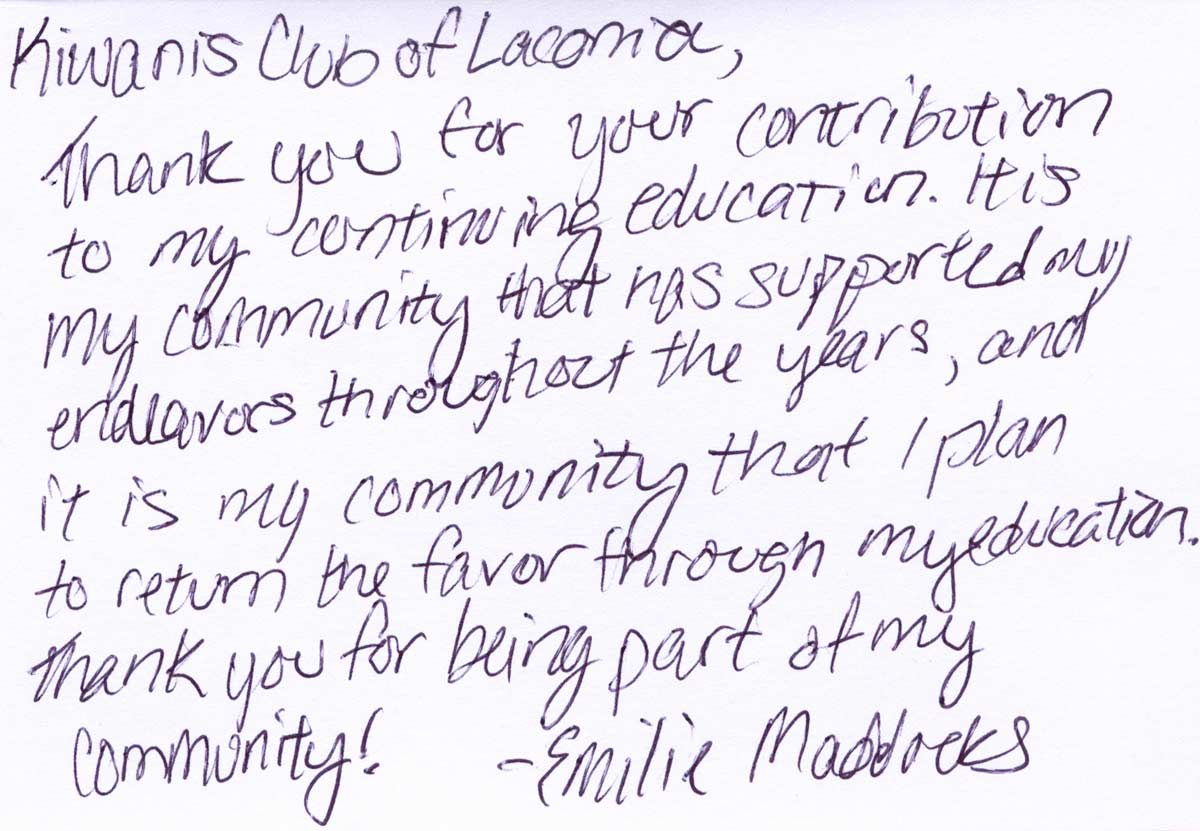 Kiwanis Club of Laconia,
Thank you for your contribution
to my continuing education. It is
my community that has supported my
endeavors throughout the years, and
it is my community that I plan
to return the favor through my education.
Thank you for being part of my
community! - Emilie Maddocks